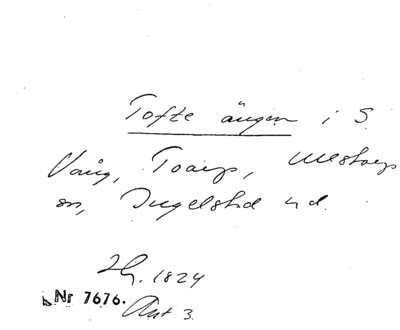 Tofte ängen i S.
Vång, Toarps, Ullstorps
sn, Ingelstad hd.
Hg. 1824
Nr 7676.
Akt 3.